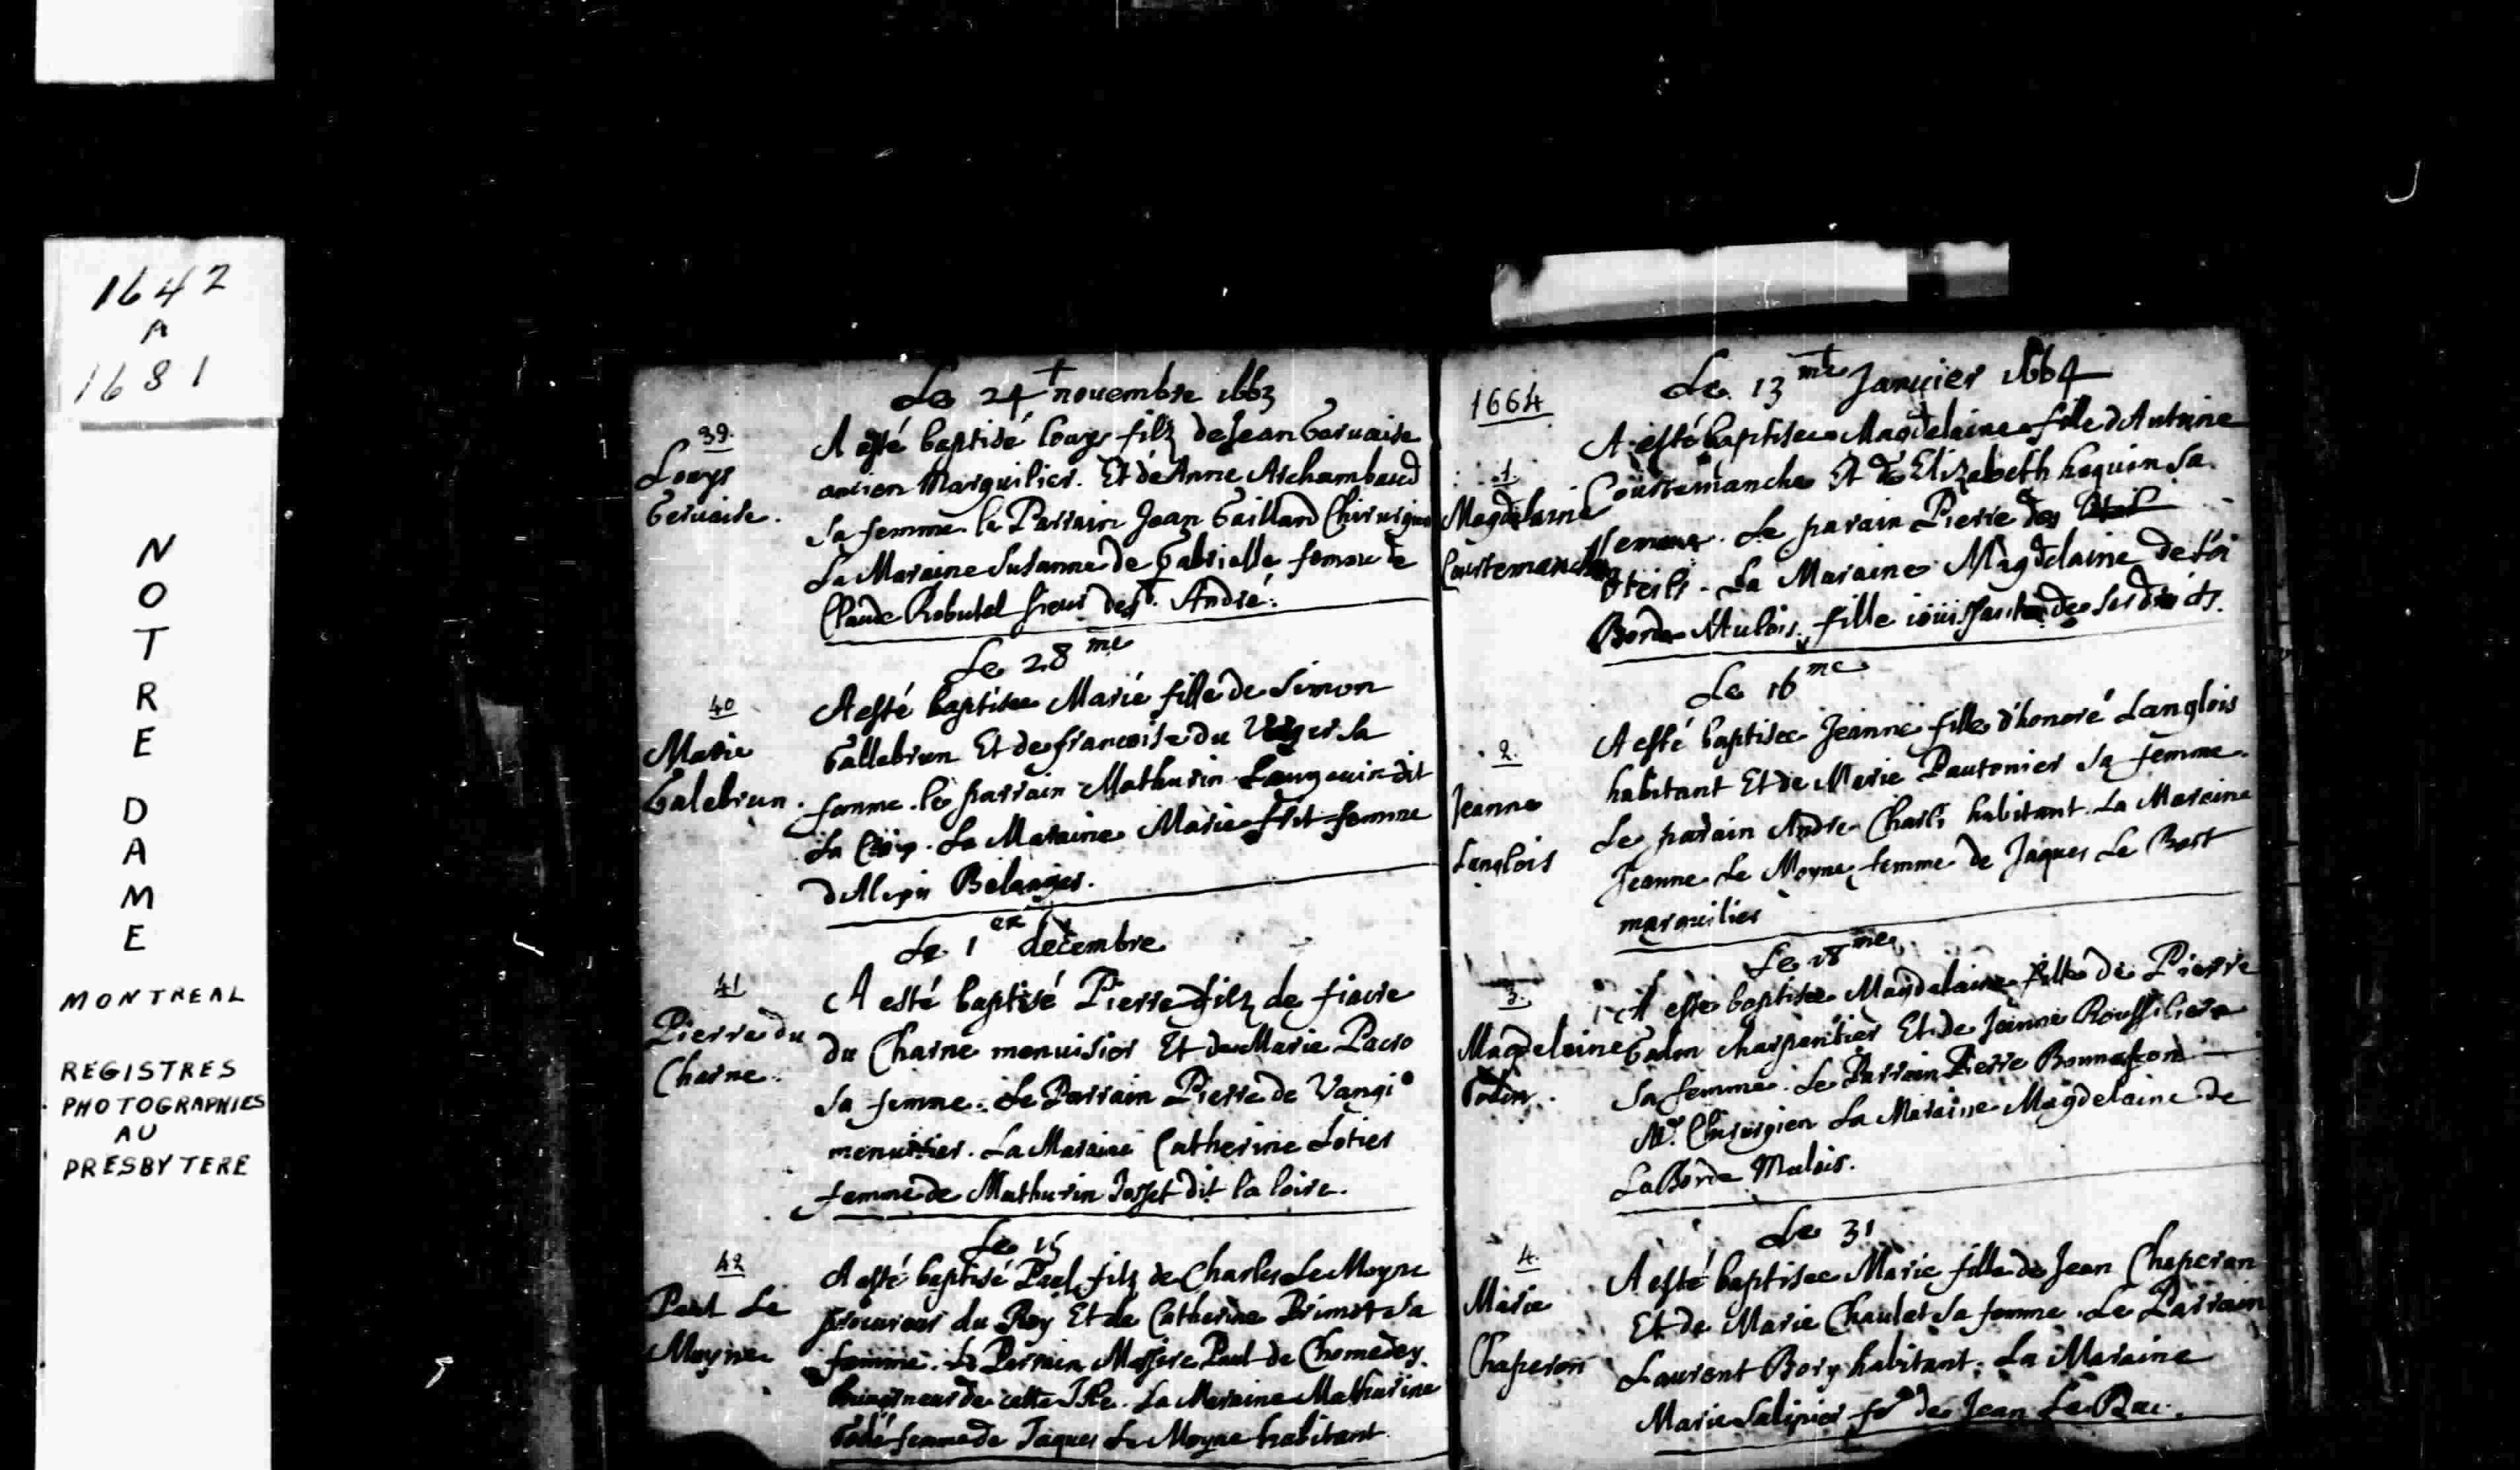 1642
A
1681
N
O
T
R
E
D
A
M
E
MONTREAL
REGISTRES
PHOTOGRAPHIES
AU
PRESBYTERE
Le 24 novembre 1663
39.
Louys
Gervaise.
A esté baptisé louys filz de Jean Gervaise
ancien Marguilier. Et de Anne Archambaud
sa femme. le Parrain Jean Gaillard Chirurgien
La Maraine Susanne de Gabrielle femme de
Claude Robutel sieur de St. André.
Le 28me
40
Marie
Galebrun.
A esté baptisee Marie fille de Simon
Gallebrun Et de francoise du Verger sa
femme. le parrain Mathurin Langevin dit
la Croix. La Maraine Marie
femme
Belanger.
Le 1er decembre
41
Pierre du
Charne.
A esté baptisé Pierre filz de fiacre
du Charne menuisier Et de Marie Pacro
sa femme. Le Parrain Pierre de Vangi
menuisier. La Maraine Catherine Lotier
femme de Mathurin Josset dit la loire.
Le 15
42
Paul Le
Moyne
A esté baptisé Paul filz de Charles Le Moyne
procureur du Roy Et de Catherine Primot sa
femme. Le Parrain Messire Paul de Chomedey.
Gouverneur de cette Isle. La Maraine Mathurine
Godé femme de Jaques Le Moyne habitant
1664
Le 13me Janvier 1664
1.
Magdelaine
Courtemanche
A esté baptisee Magdelaine fille d'Antoine
Courtemanche Et de Elizabeth haquin sa
femme. Le parain Pierre des
La Maraine Magdelaine de la
Borde Mulois, fille iouissante de ses droicts.
Le 16me
2
Jeanne
Langlois
A esté baptisee Jeanne fille d'honoré Langlois
habitant Et de Marie Pautonier sa femme.
Le parain André Charli habitant. La Maraine
Jeanne Le Moyne femme de Jaques Le Bert
marguilier
Le 18me
3.
Magdelaine
Gadin.
A esté baptisee Magdelaine fille de Pierre
Gadin charpentier Et de Jeanne Roussiliere
sa femme. Le Parrain Pierre Bonnefon
Mr. Chirurgien La Maraine Magdelaine de
La Borde Mulois.
Le 31
4.
Marie
Chaperon
A esté baptisee Marie fille de Jean Chaperon
Et de Marie Chaulet sa femme. Le Parrain
Laurent Bory habitant. La Maraine
Marie Salipier fe de Jean Le Duc.